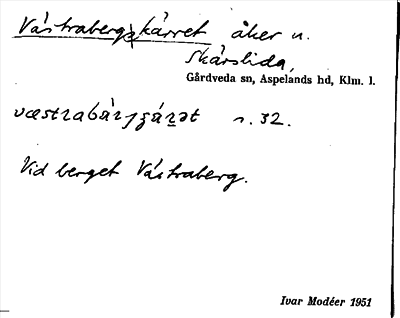 Västrabergskärret åker u.
Skärslida,
Gårdveda sn, Aspelands hd, Klm. l.
n. 32.
Vid berget Västraberg.
Ivar Modéer 1951